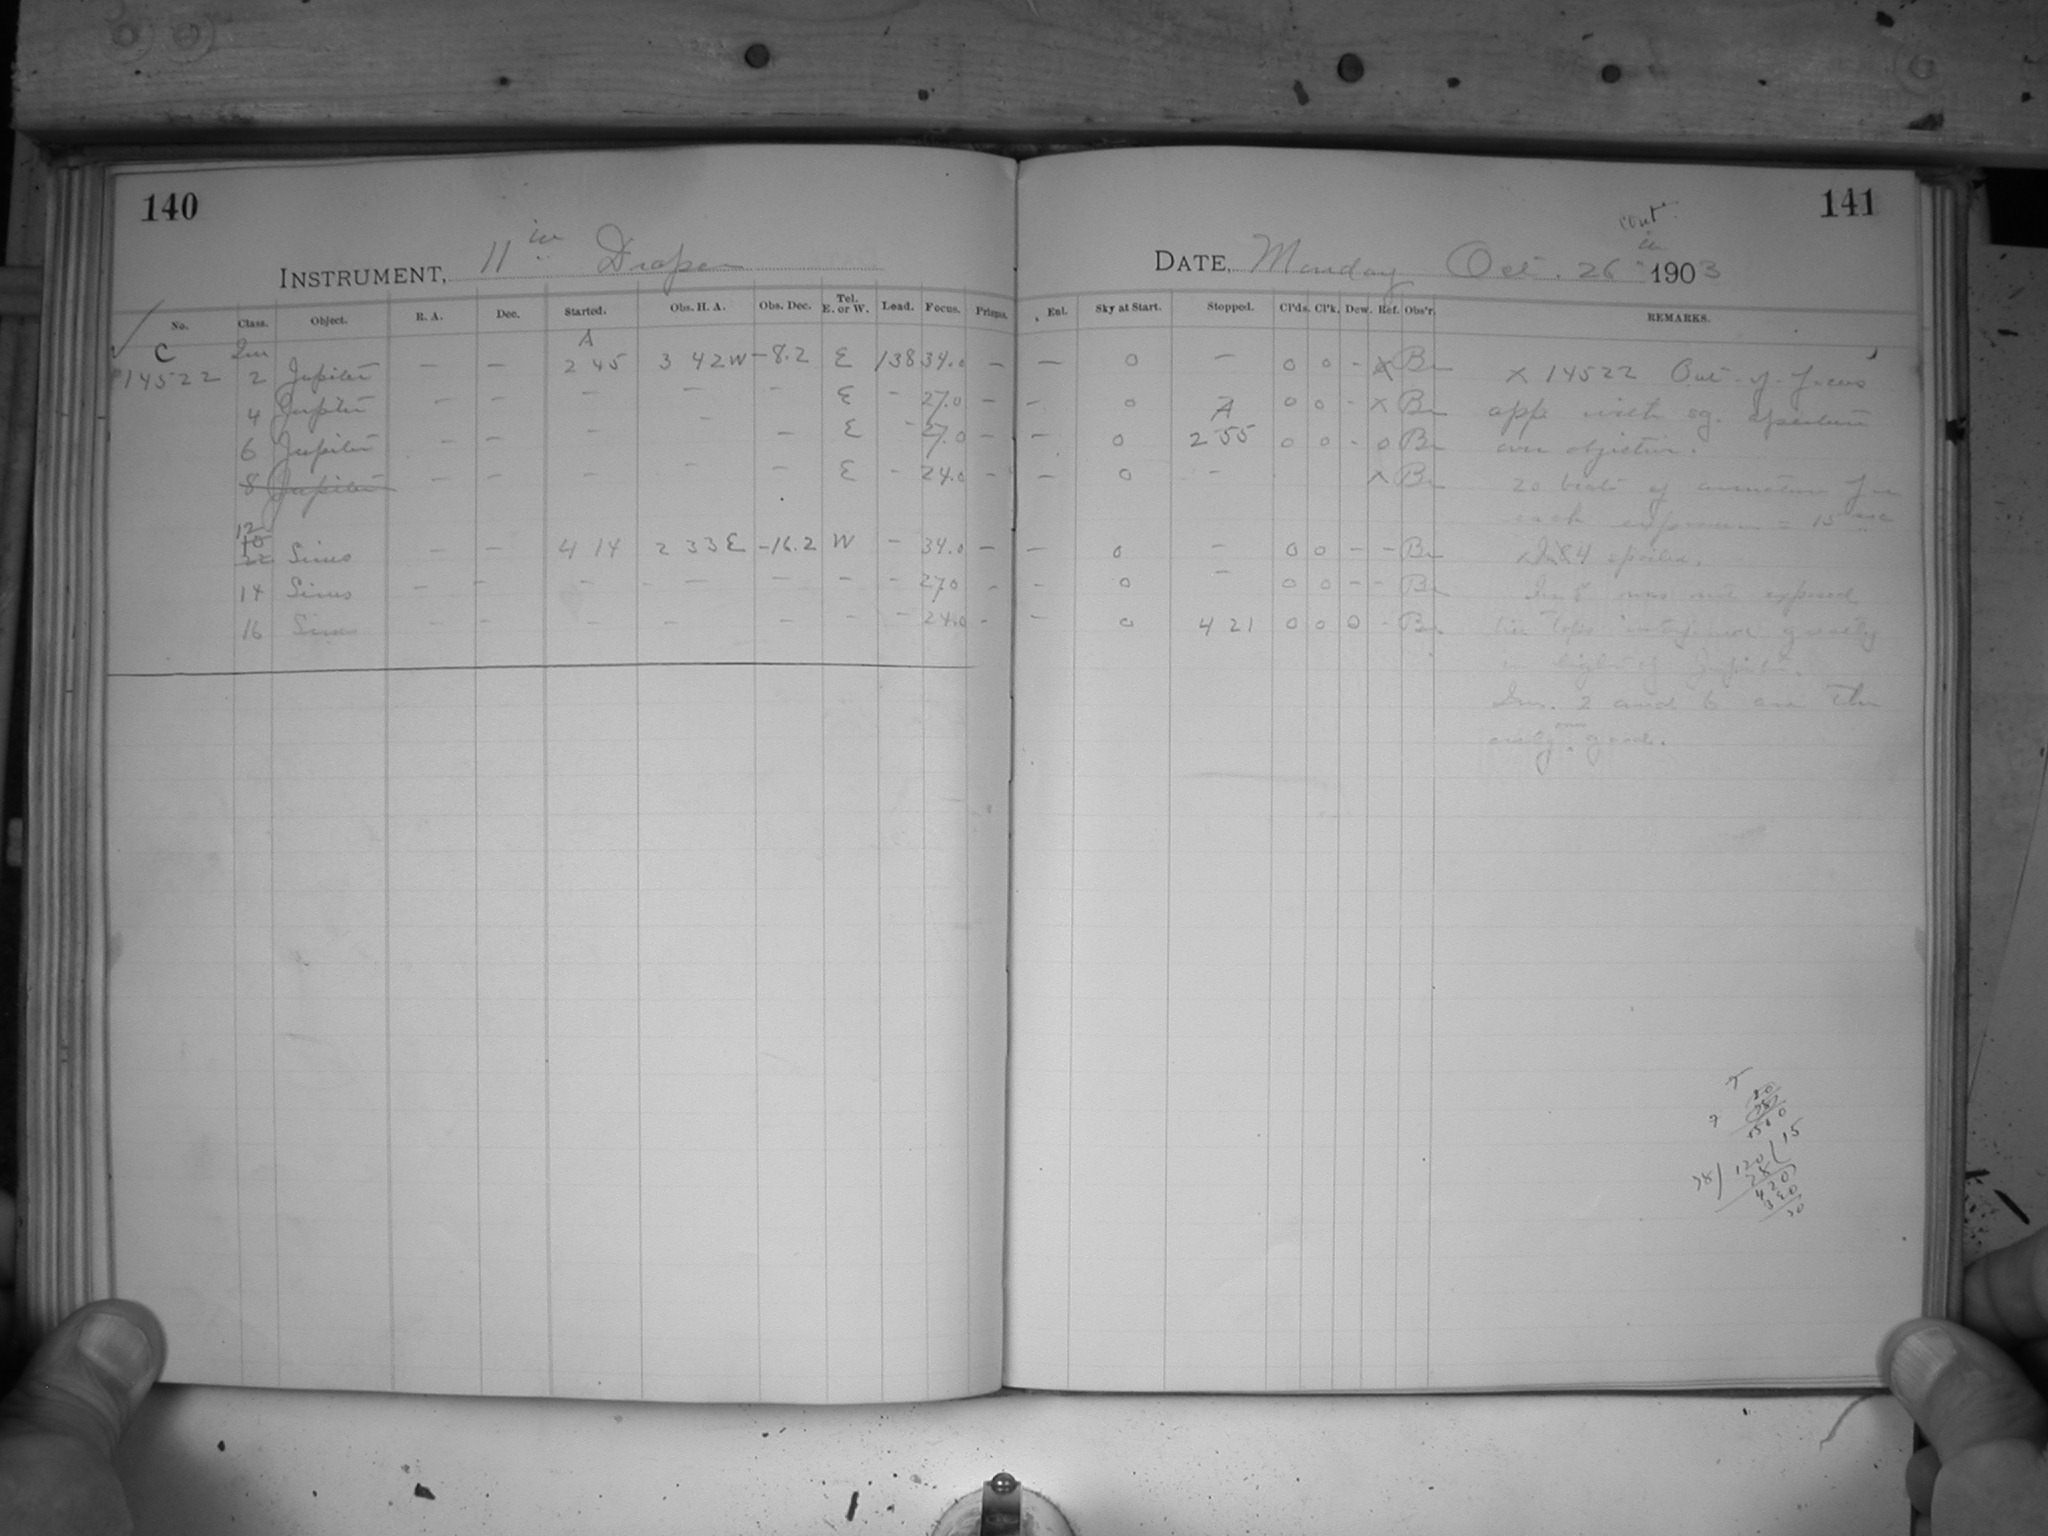 140
INSTRUMENT, 11 in Draper
No. Class. Object. R. A. Dec. Started. Obs. H. A. Obs. Dec. Tel. E. or W. Lead. Focus. Prisms.
C Im A
14522 2 Jupiter — — 2 45 3 42 W -8.2 E 138 34.0 —
4 Jupiter — — — — — E — 27.0 —
6 Jupiter — — — — E — 27.0 —
8 Jupiter — — — — — E — 24.0 —
12
10
22 Sirius — — 4 14 2 33 E -16.2 W — 34.0 —
14 Sirius — — — — — — — 270 —
16 Sirius — — — — — — — 24.0 —
141
cont.
DATE, Monday Oct. 26 1903
Enl. Sky at Start. Stopped. Cl'ds. Cl'k. Dew. Ref. Obs'r. REMARKS.
— 0 — 0 0 - X Br x 14522 Out of focus
— 0 A 0 0 - X Br app with sq. aperture
— 0 2 55 0 0 - 0 Br over objective.
— 0 — X Br 20 beats of armature for
each exposure = 15 sec
— 0 — 0 0 - - Br 4 spoiled.
— 0 — 0 0 - - Br Im 8 was not exposed
— 0 4 21 0 0 0 - Br interfered greatly
in light of Jupiter.
Im. 2 and 6 are the
only ones good.
20
15
120
28
420